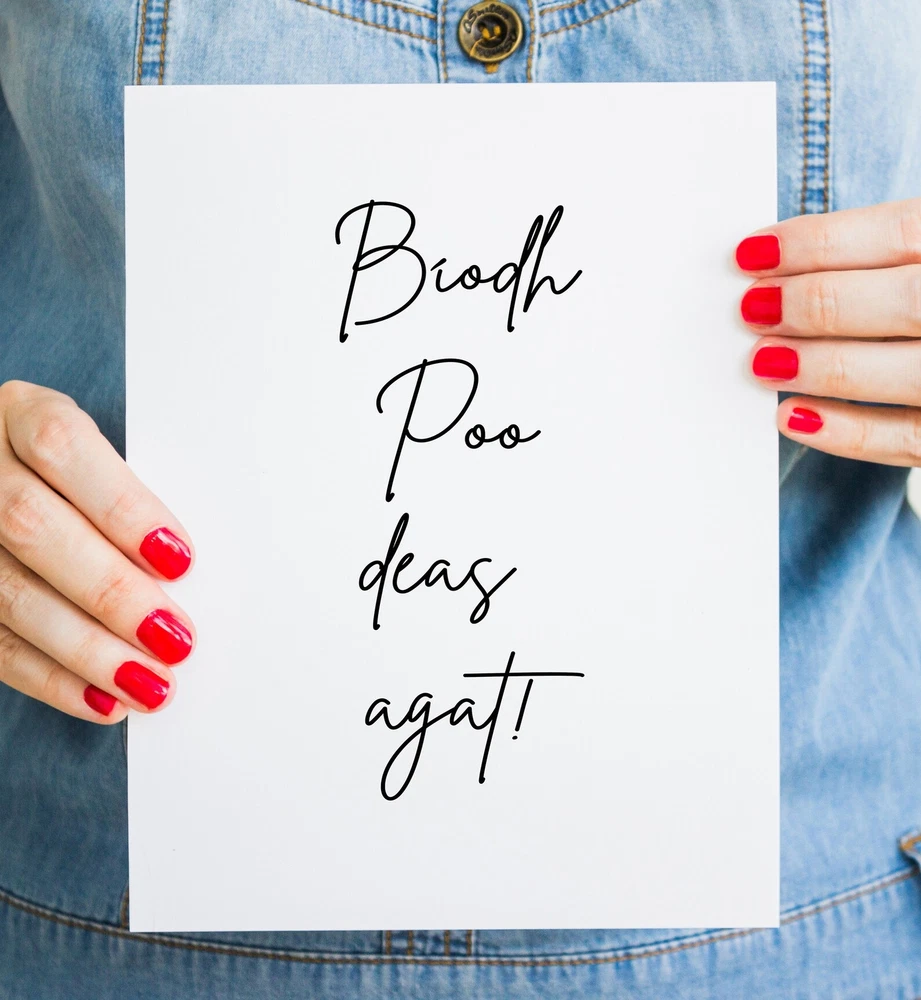 Bíodh
Poo
deas
agat!